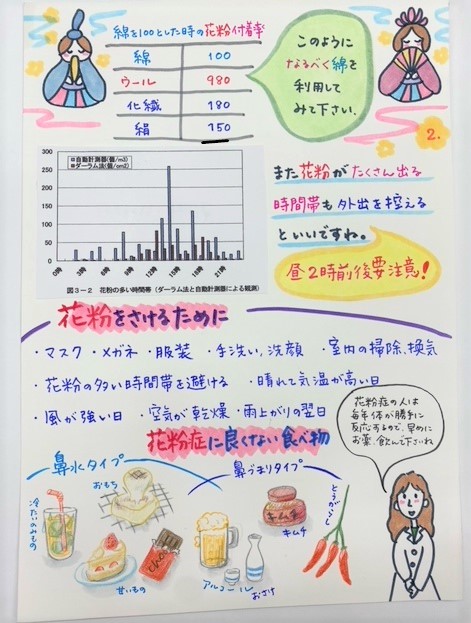 綿を100とした時の花粉付着率
綿 100
ウール 980
化繊 180
絹 150
このように
なるべく綿を
利用して
みて下さい.
2.
自動計測器(個/m3)
ダーラム法(個/cm2)
300
250
200
150
100
50
0
0時 3時 6時 9時 12時 15時 18時 21時
図3-2 花粉の多い時間帯(ダーラム法と自動計測器による観測)
また花粉がたくさん出る
時間帯も外出を控える
といいですね。
昼2時前後要注意!
花粉をさけるために
・マスク ・メガネ ・服装 ・手洗い,洗顔 ・室内の掃除,換気
・花粉の多い時間帯を避ける ・晴れて気温が高い日
・風が強い日 ・空気が乾燥 ・雨上がりの翌日
花粉症の人は
毎年体が勝手に
反応するので、早めに
お薬、飲んで下さいね
花粉症に良くない食べ物
鼻水タイプ
鼻づまりタイプ
冷たいのみもの
おもち
甘いもの
アルコール
おさけ
キムチ
キムチ
とうがらし